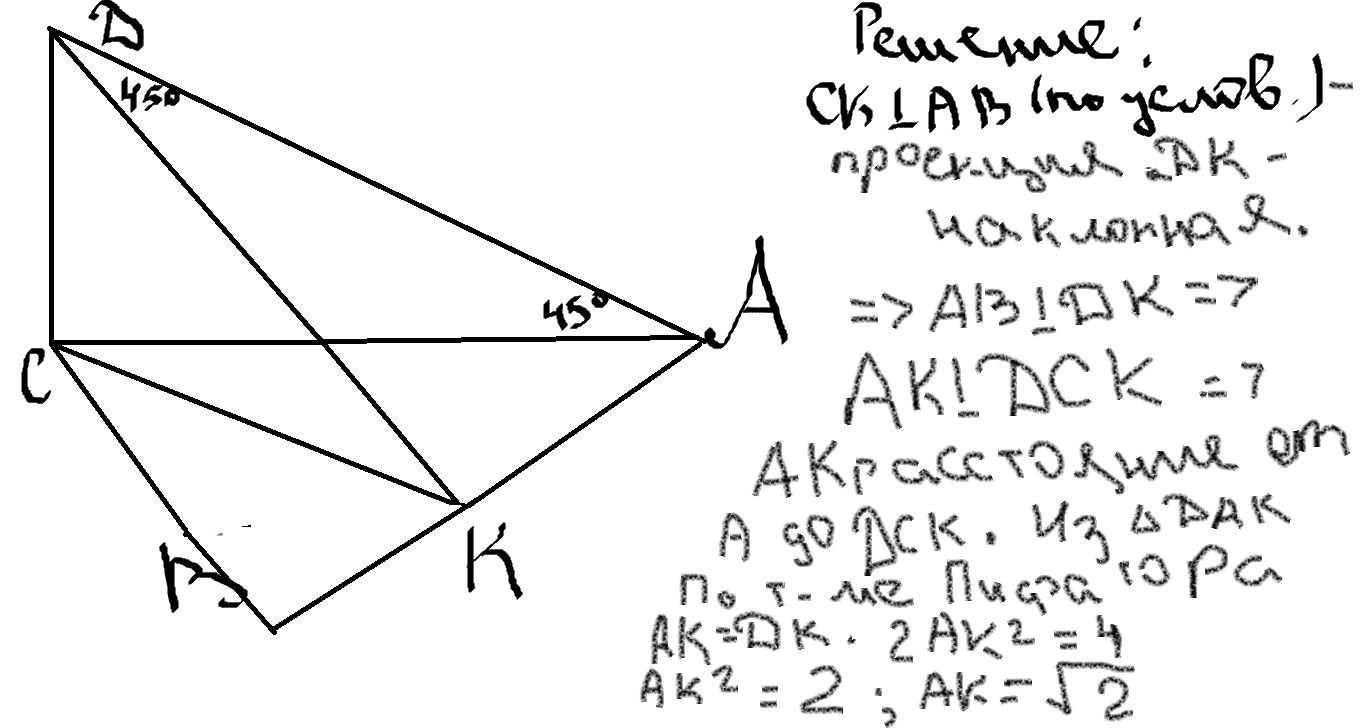 D
45°
45°
A
C
B
K
Решение:
CK⊥AB (по услов.)-
проекция. DK-
наклонная.
=> AB⊥DK =>
AK⊥DCK =>
AK расстояние от
A до DCK. Из ∆DAK
По т-ме Пифагора
AK=DK. 2AK²=4
AK²=2; AK=√2